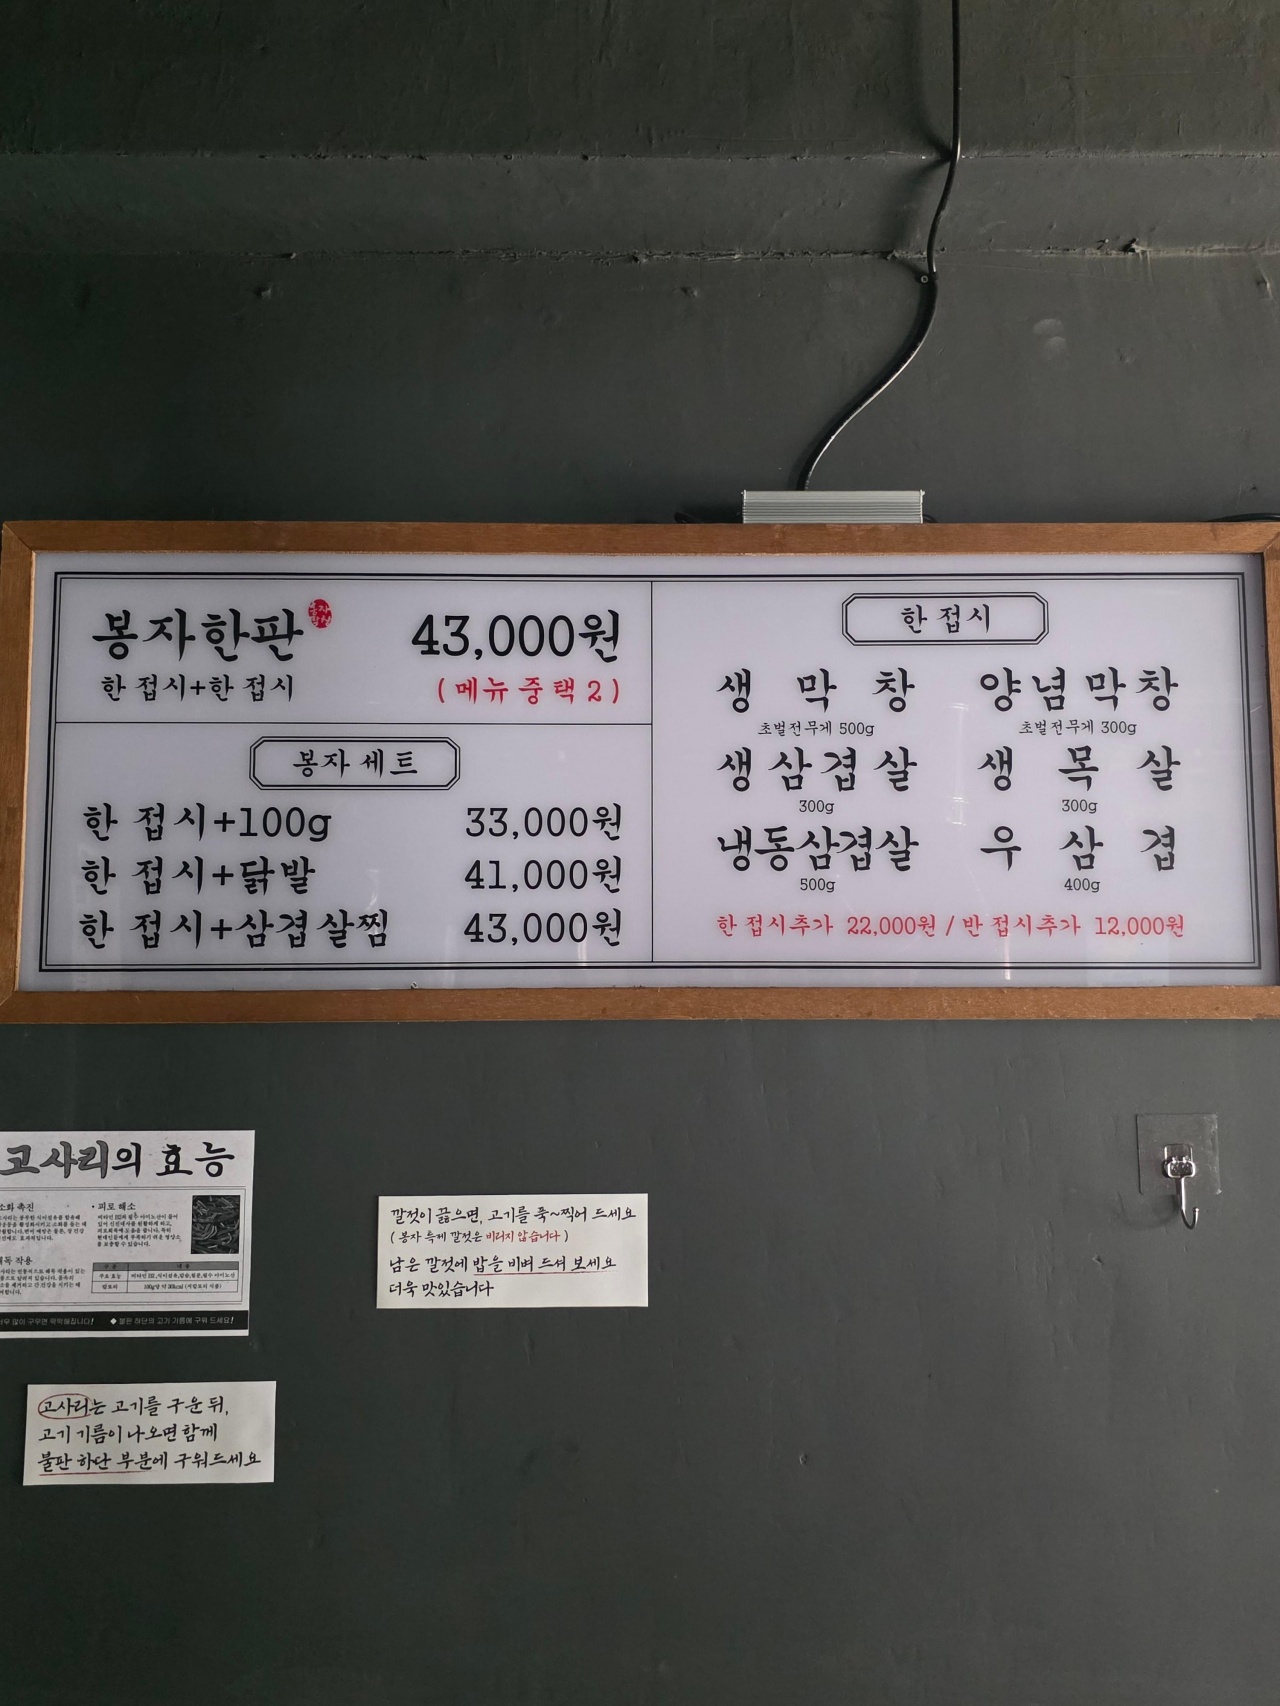 봉자한판
43,000원
한 접시+한 접시
(메뉴 중 택 2)
봉자 세트
한 접시+100g 33,000원
한 접시+닭발 41,000원
한 접시+삼겹살찜 43,000원
한 접시
생막창 양념막창
초벌전무게 500g 초벌전무게 300g
생삼겹살 생목살
300g 300g
냉동삼겹살 우삼겹
500g 400g
한 접시추가 22,000원 / 반 접시추가 12,000원
고사리의 효능
• 피로 해소
깔젓이 끓으면, 고기를 푹~찍어 드세요
(봉자 특제 깔젓은 비리지 않습니다)
남은 깔젓에 밥을 비벼 드셔 보세요
더욱 맛있습니다
고사리는 고기를 구운 뒤,
고기 기름이 나오면 함께
불판 하단 부분에 구워드세요